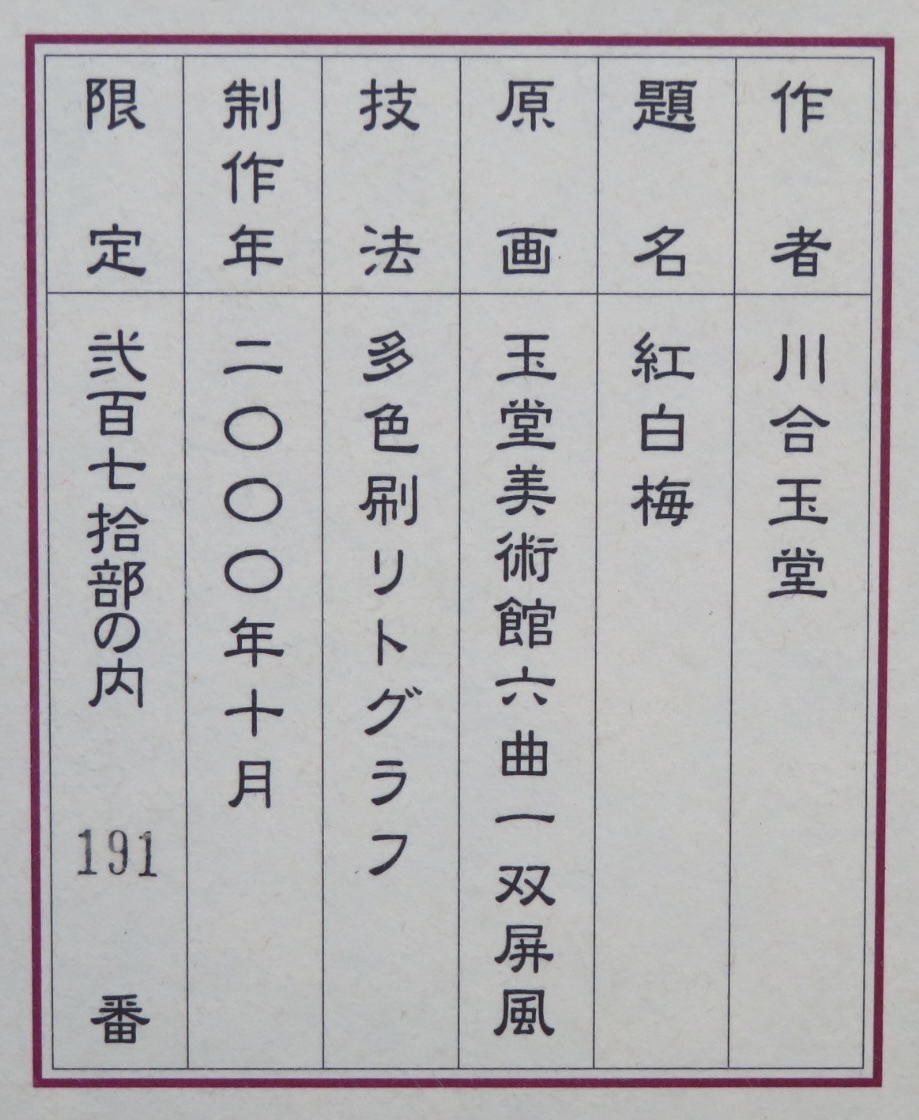 作者 川合玉堂
題名 紅白梅
原画 玉堂美術館六曲一双屏風
技法 多色刷リトグラフ
制作年 二〇〇〇年十月
限定 弐百七拾部の内 191 番